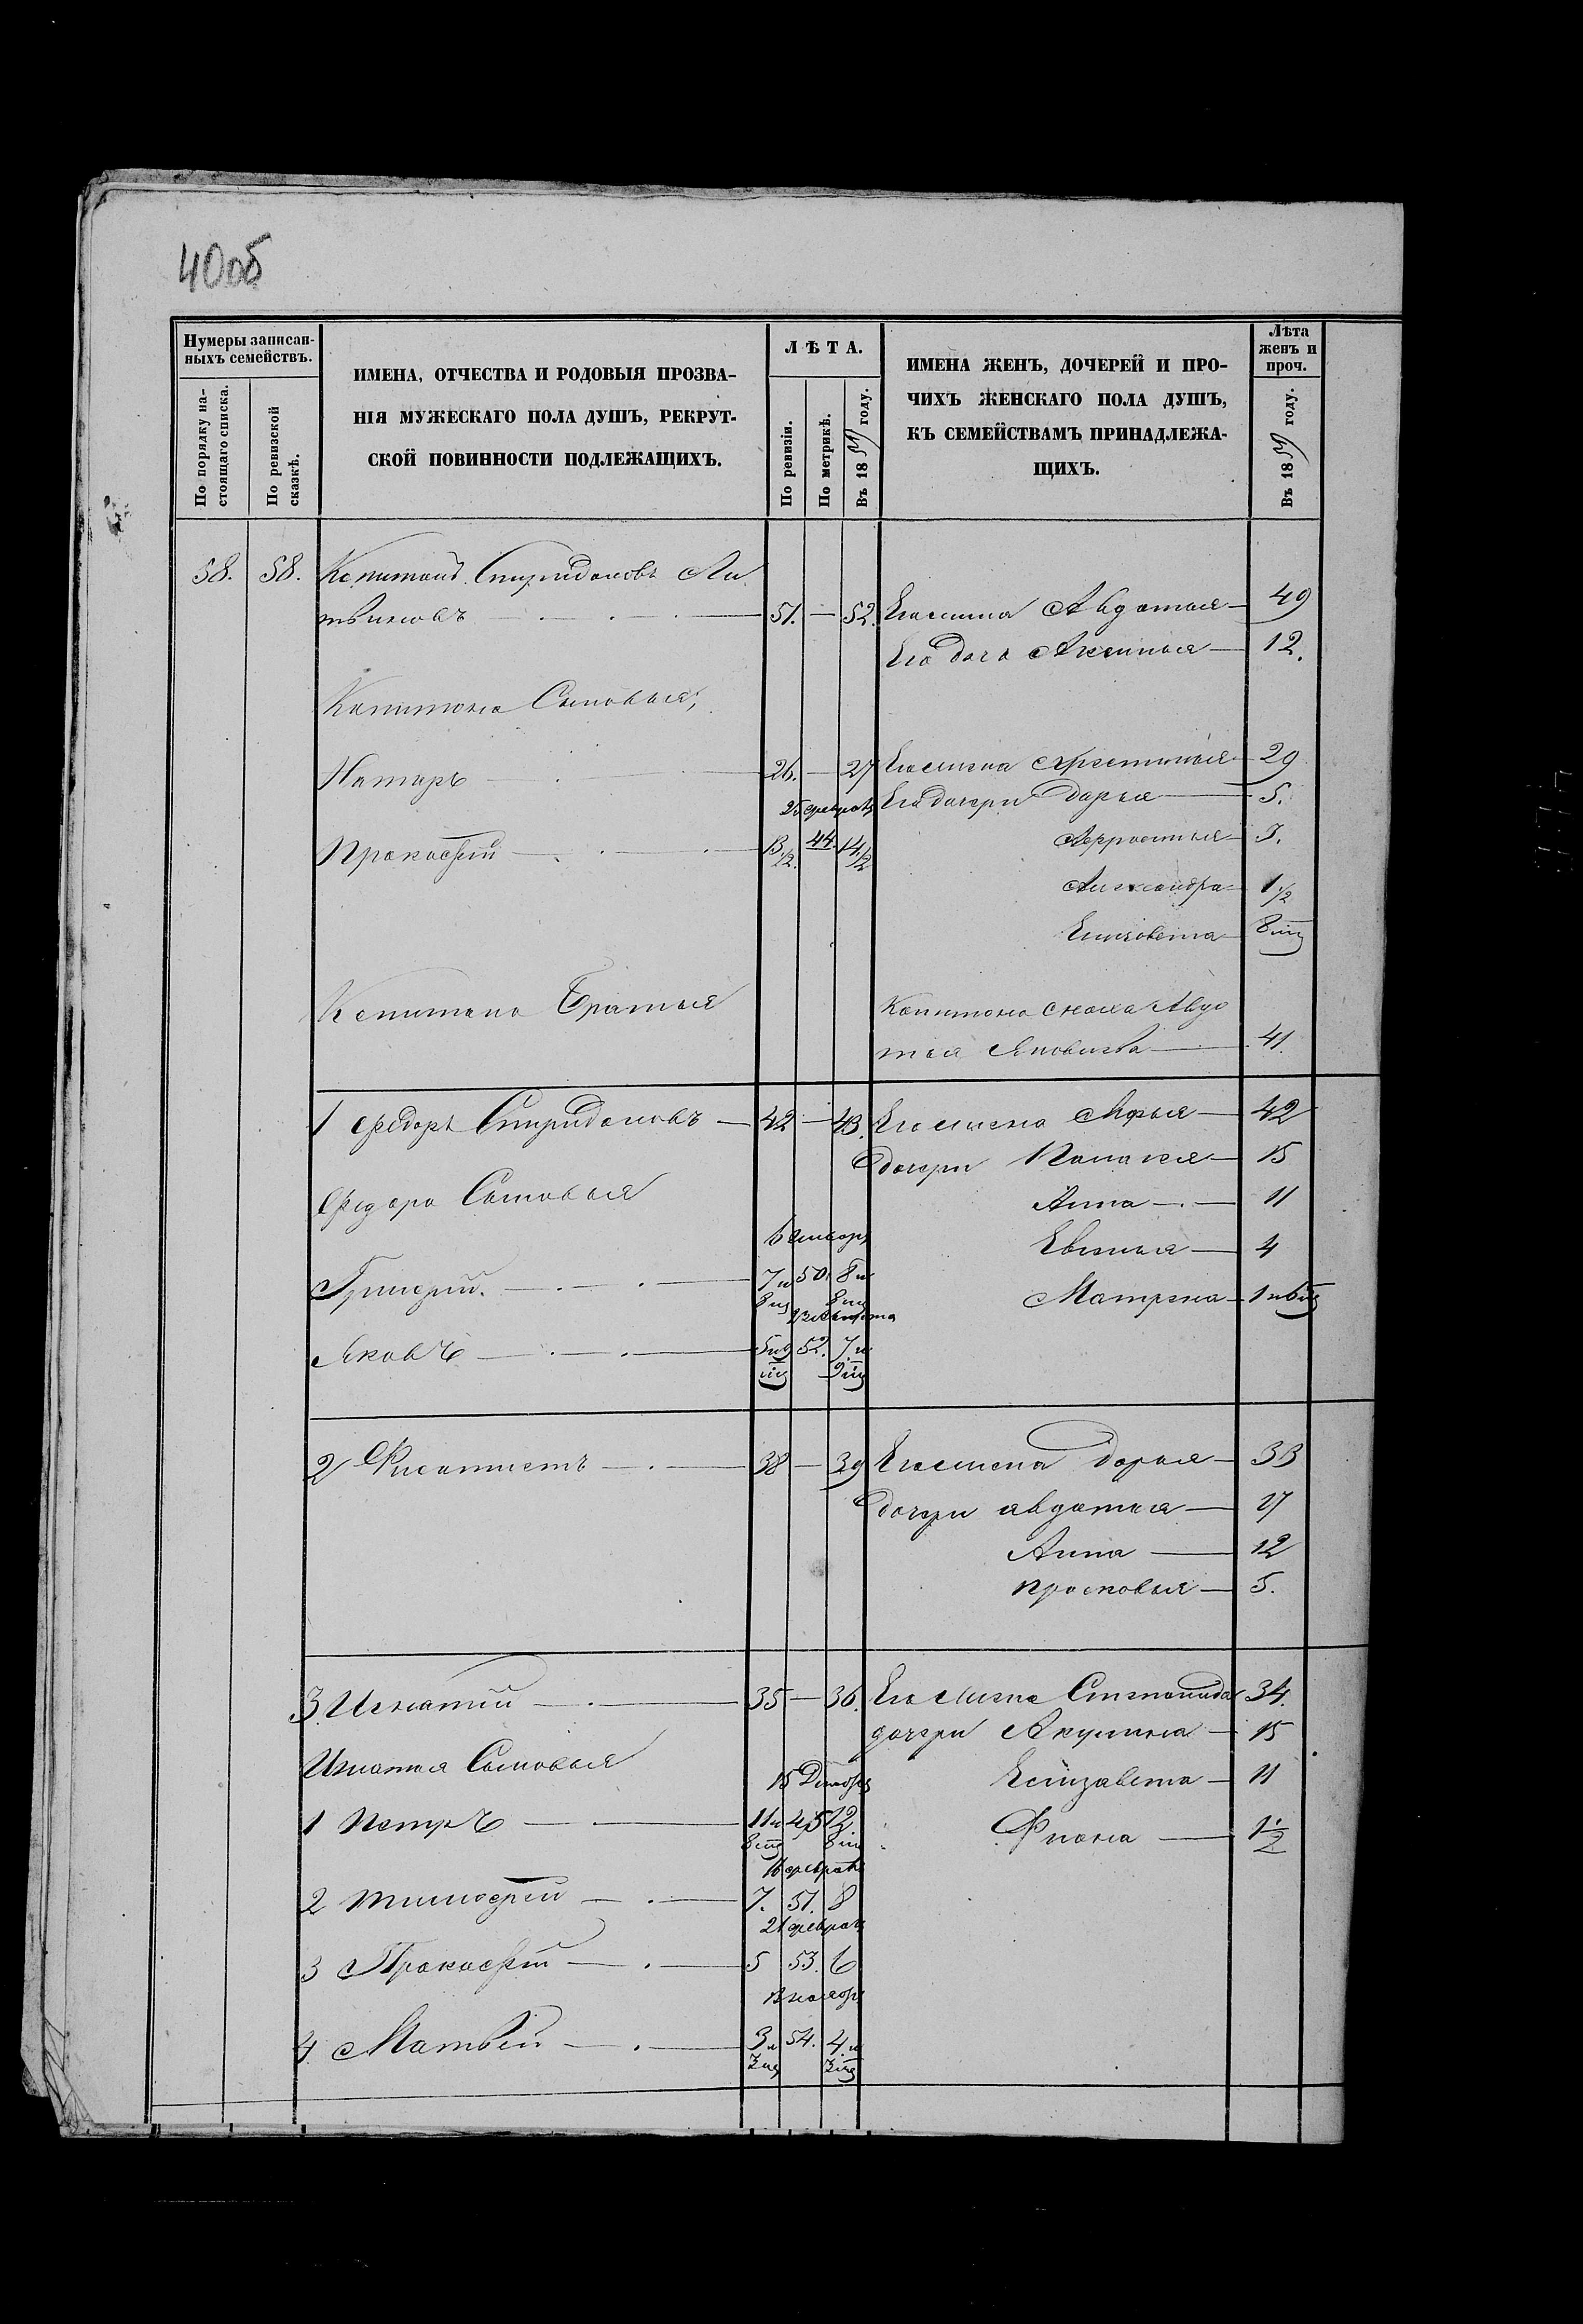 40об
Нумеры записан-
ныхъ семействъ.
По порядку на-
стоящаго списка.
По ревизской
сказкѣ.
ИМЕНА, ОТЧЕСТВА И РОДОВЫЯ ПРОЗВА-
НІЯ МУЖЕСКАГО ПОЛА ДУШЪ, РЕКРУТ-
СКОЙ ПОВИННОСТИ ПОДЛЕЖАЩИХЪ.
ЛѢТА.
По ревизіи.
По метрикѣ.
Въ 1859 году.
ИМЕНА ЖЕНЪ, ДОЧЕРЕЙ И ПРО-
ЧИХЪ ЖЕНСКАГО ПОЛА ДУШЪ,
КЪ СЕМЕЙСТВАМЪ ПРИНАДЛЕЖА-
ЩИХЪ.
Лѣта
женъ и
проч.
Въ 1859 году.
58. 58. Капитонъ Спиридоновъ Ли
твиновъ 51. — 52. Его жена Авдотья 49
Его дочь Аксинья 12.
Капитона Сыновья,
26. — 27 Его жена 29
25 февраля Его дочери Дарья 5.
Прокофій 13 1/2. 44. 14 1/2 3.
Александра 1 1/2
Елизовета 8 мц
Капитона Братья Капитона сноха Авдо
тья 41.
1 Федоръ Спиридоновъ 42 — 43. Его жена Софья 42
дочери Палагея 15
Федора Сыновья Анна 11
6 Генворя Евгенья 4
Григорій. 7 и 50. 8 и Матрена 1 и 6 мц
8 мц 8 мц
Яковъ 52. 7 и
9 мц
2 38 — 39 Его жена Дарья 33
дочери Авдотья 17
Анна 12
Просковья 5.
3. Игнатій 35 — 36. Его жена Степанида 34.
дочери Акулина 15
Игнатья Сыновья 15 Декобря Елизавета 11
1 Петръ 11 и 45 12 Фиона 1 1/2
8 мц 8 мц
16 февраля
2 Тимофей 7. 51. 8
21 февраля
3 Прокофій 5 53. 6
4 Матвѣй 3 и 54. 4. и
3 мц 3 мц